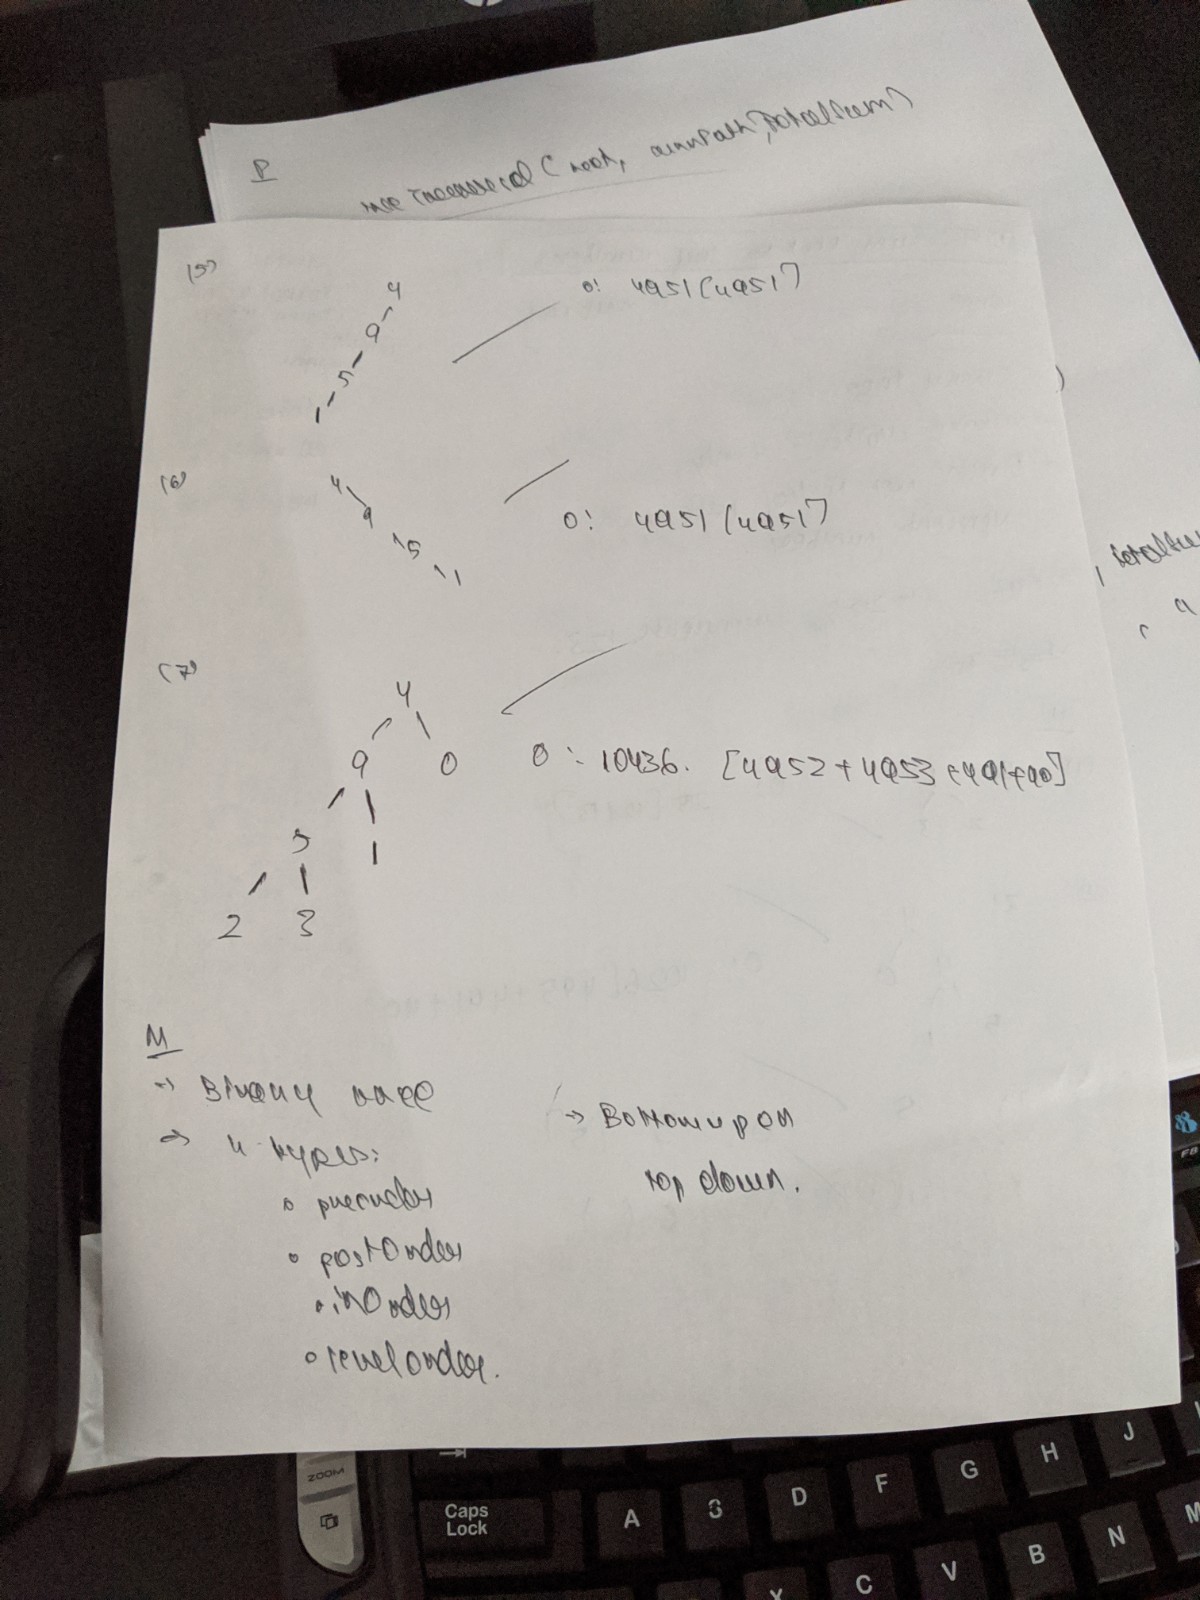 P
(root, currPath, totalSum)
)
(5)
4
9
5
1
O: 4951 (4951)
(6)
4
9
5
1
O: 4951 (4951)
(7)
4
9 0
5 1
2 3
O: 10436. [4952 + 4953 + 491 + 40]
M
→ Binary tree
→ 4 types:
o preorder
o postOrder
o inOrder
o levelorder.
→ Bottom up or
top down.
ZOOM
Caps
Lock
A S D F G H J
X C V B N M